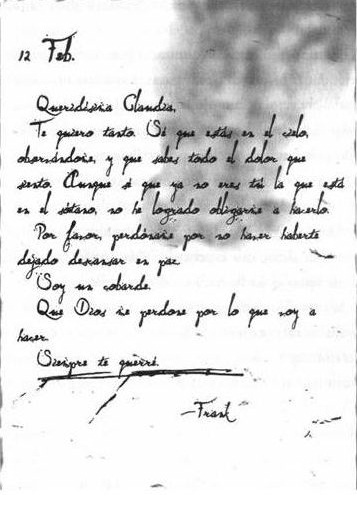 12 Feb.
Queridísima Claudia,
Te quiero tanto. Sé que estás en el cielo,
observándome, y que sabes todo el dolor que
siento. Aunque sé que ya no eres tú la que está
en el sótano, no he logrado obligarme a hacerlo.
Por favor, perdóname por no haber haberte
dejado descansar en paz.
Soy un cobarde.
Que Dios me perdone por lo que voy a
hacer.
Siempre te querré.
—Frank